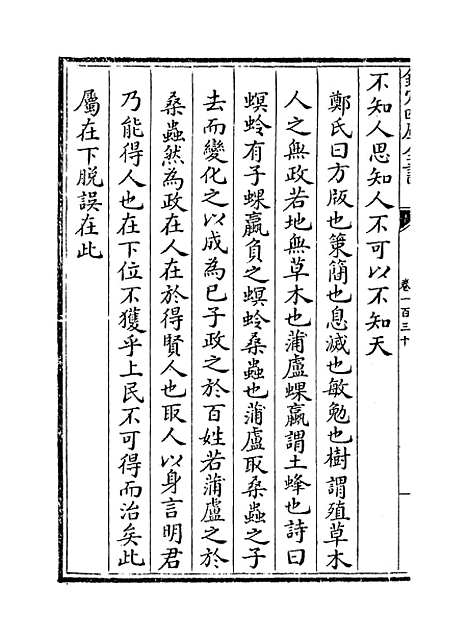 欽定四庫全書
卷一百三十
不知人思知人不可以不知天
鄭氏曰方版也策簡也息滅也敏勉也樹謂殖草木
人之無政若地無草木也蒲盧蜾蠃謂土蜂也詩曰
螟蛉有子蜾蠃負之螟蛉桑蟲也蒲盧取桑蟲之子
去而變化之以成為已子政之於百姓若蒲盧之於
桑蟲然為政在人在於得賢人也取人以身言明君
乃能得人也在下位不獲乎上民不可得而治矣此
屬在下脱誤在此